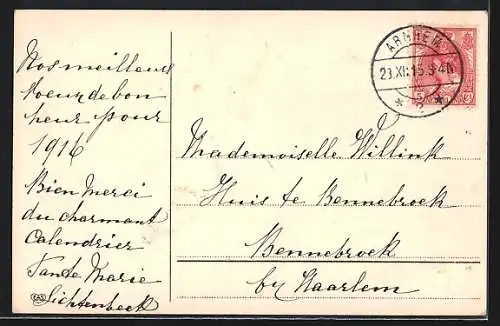 Nos meilleurs
voeux de bon
heur pour
1916
Bien Merci
du charmant
Calendrier
Tante Marie
Lichtenbeek
ARNHEM
Mademoiselle Willink
Huis te Bennebroek
Bennebroek
by Haarlem